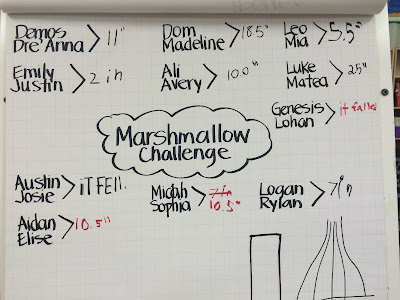 Demos
Dre'Anna > 11"
Dom
Madeline > 18.5"
Leo
Mia > 5.5"
Emily
Justin > 2 in
Ali
Avery > 10.0"
Luke
Matea > 25"
Genesis
Lohan > it failed
Marshmallow
Challenge
Austin
Josie > iT FELL.
Micah
Sophia > 7in
10.5"
Logan
Rylan > 7in
Aidan
Elise > 10.5"